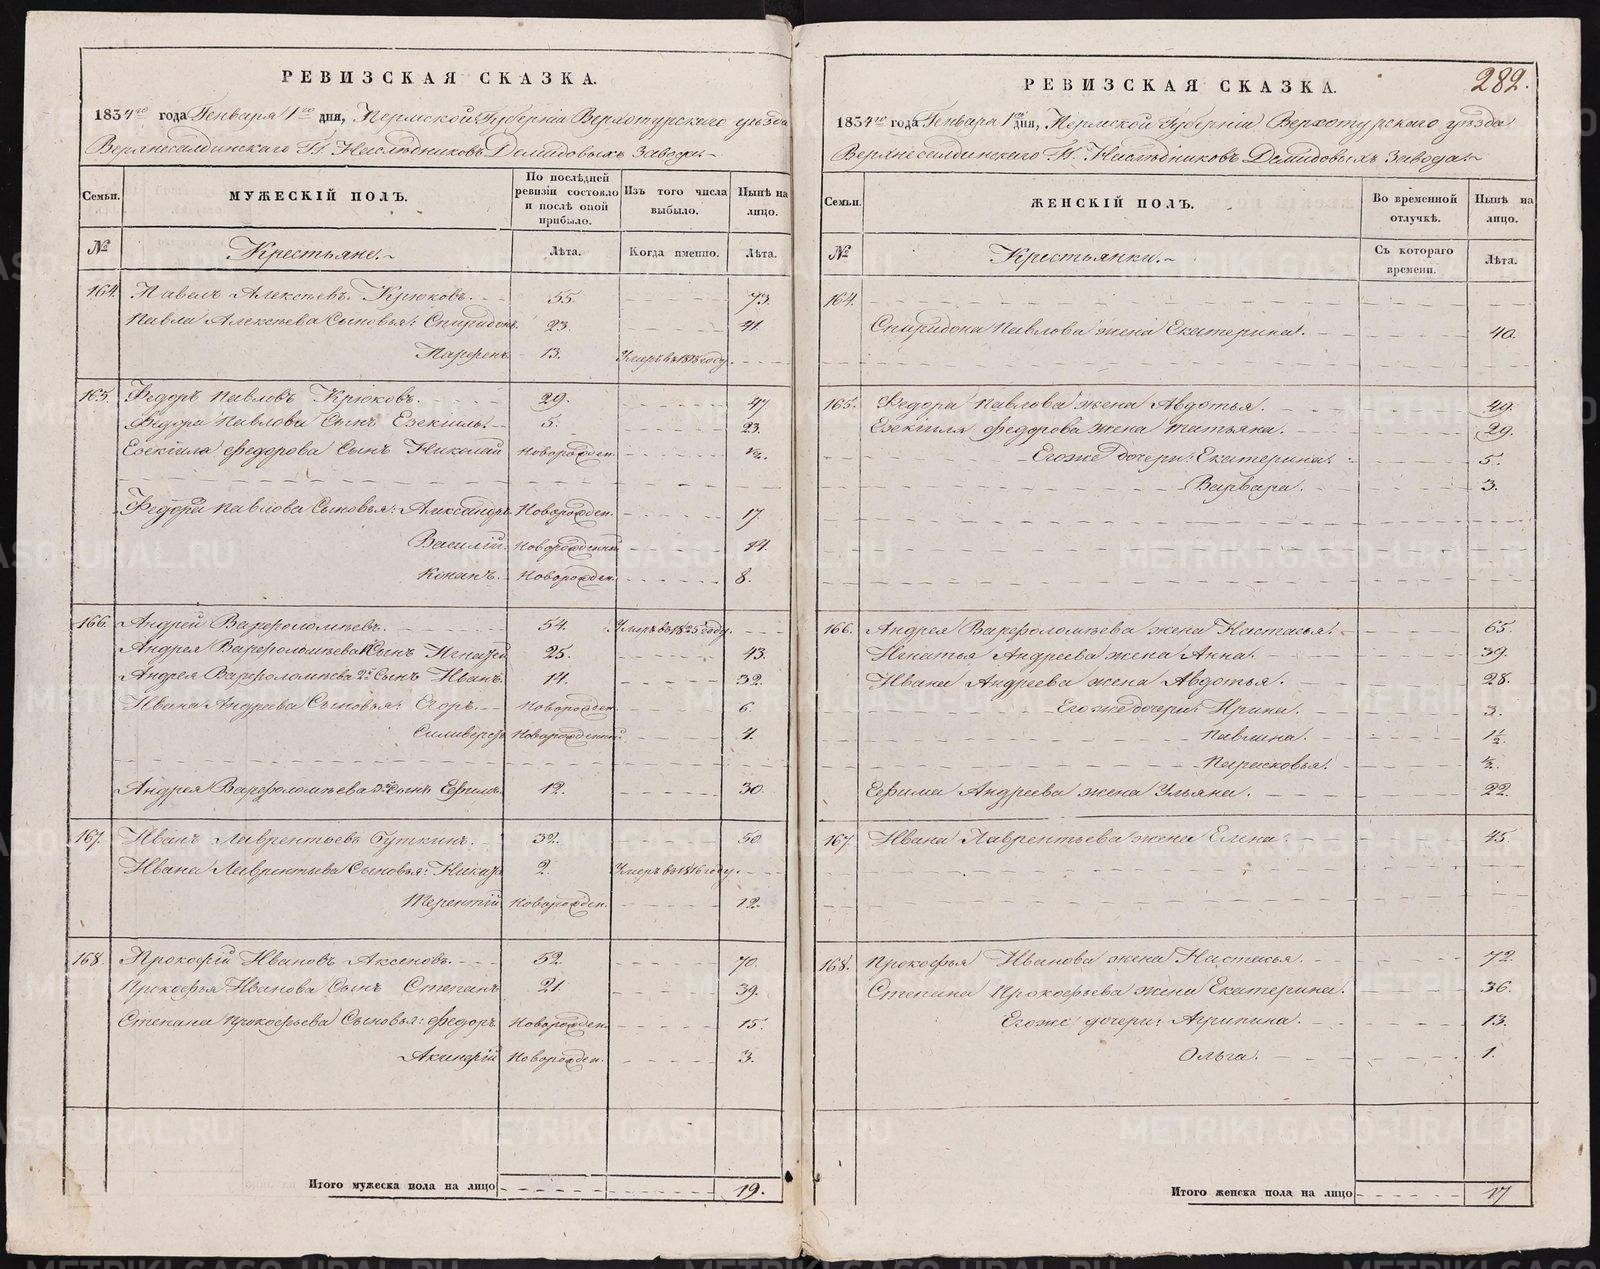 РЕВИЗСКАЯ СКАЗКА.
1834го года Генваря 1го дня, Пермской Губерніи Верхотурскаго уѣзда
Верхнесалдинскаго Гг. Наслѣдниковъ Демидовыхъ Завода
Семьи. МУЖЕСКІЙ ПОЛЪ. По послѣдней ревизіи состояло и послѣ оной прибыло. Изъ того числа выбыло. Нынѣ на лицо.
№ Крестьяне. Лѣта. Когда именно. Лѣта.
164. Павелъ Алексѣевъ Крюковъ. 55. 73.
Павла Алексѣева Сыновья: Спиридонъ 23. 41.
Парфенъ 13. Умеръ въ 1818 году.
165. Федоръ Павловъ Крюковъ. 29. 47
Федора Павлова Сынъ Езекіиль. 5. 23.
Езекіиля Федорова Сынъ Николай Новорожден. ½.
Федора Павлова Сыновья: Александръ Новорожден. 17.
Василій Новорожденный 14.
Кононъ. Новорожден. 8.
166. Андрей Варфоломѣевъ. 54. Умеръ въ 1825 году.
Андрея Варфоломѣева 1й Сынъ Игнатей 25. 43.
Андрея Варфоломѣева 2й Сынъ Иванъ. 14. 32.
Ивана Андреева Сыновья: Егоръ. Новорожден. 6.
Силиверстъ Новорожденный 4.
Андрея Варфоломѣева 3й Сынъ Ефимъ. 12. 30.
167. Иванъ Лаврентьевъ Буткинъ. 32. 50
Ивана Лаврентьева Сыновья: Никита 2. Умеръ въ 1816 году.
Терентій Новорожден. 12.
168. Прокофій Ивановъ Аксеновъ. 52. 70.
Прокофья Иванова Сынъ Степанъ 21. 39.
Степана Прокофьева Сыновья: Федоръ Новорожден. 15.
Акинфій Новорожден. 3.
Итого мужеска пола на лицо 19.
282.
РЕВИЗСКАЯ СКАЗКА.
1834го года Генваря 1го дня, Пермской Губерніи Верхотурскаго уѣзда
Верхнесалдинскаго Гг. Наслѣдниковъ Демидовыхъ Завода.
Семьи. ЖЕНСКІЙ ПОЛЪ. Во временной отлучкѣ. Нынѣ на лицо.
№ Крестьянки. Съ котораго времени. Лѣта.
164.
Спиридона Павлова жена Екатерина. 40.
165. Федора Павлова жена Авдотья. 49.
Езекіиля Федорова жена Татьяна. 29.
Егоже дочери: Екатерина. 5.
Варвара. 3.
166. Андрея Варфоломѣева жена Настасья. 65.
Игнатья Андреева жена Анна. 39.
Ивана Андреева жена Авдотья. 28.
Егоже дочери: Ирина. 3.
Павлина. 1½
Парасковья. ½.
Ефима Андреева жена Ульяна. 22.
167. Ивана Лаврентьева жена Елена. 45.
168. Прокофья Иванова жена Настасья. 72.
Степана Прокофьева жена Екатерина. 36.
Егоже дочери: Агрипина. 13.
Ольга. 1.
Итого женска пола на лицо 17
METRIKI.GASO-URAL.RU